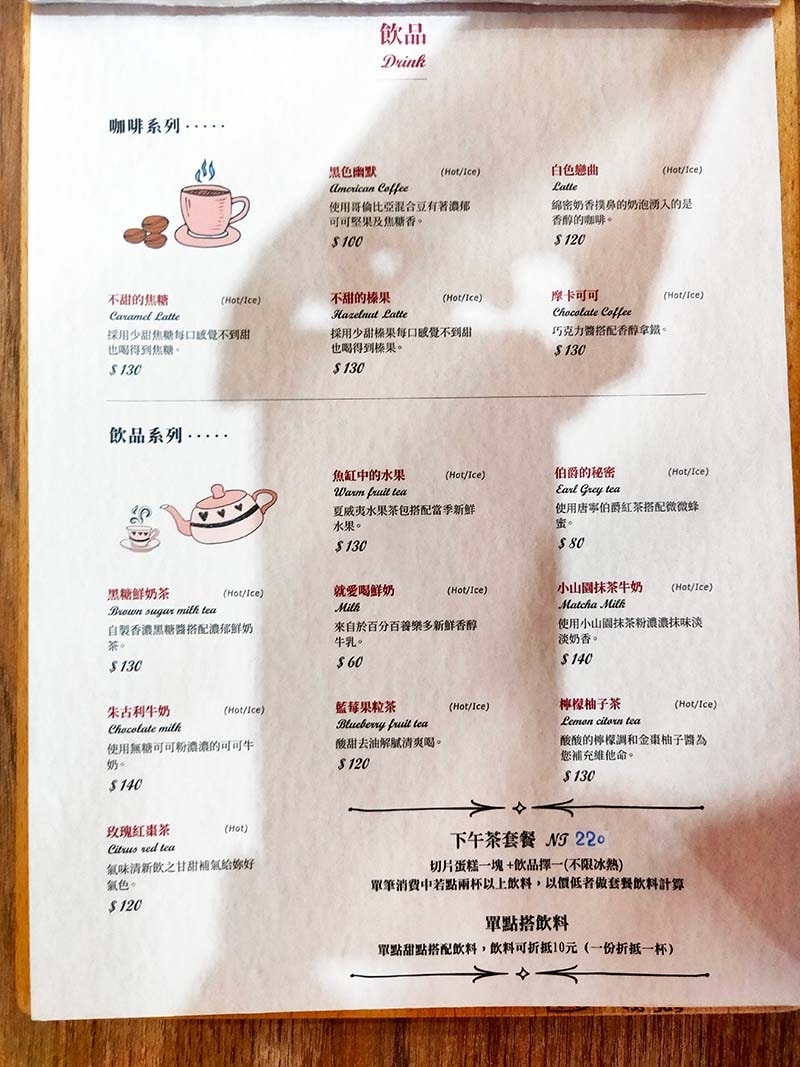 飲品
Drink
咖啡系列·····
黑色幽默 (Hot/Ice)
American Coffee
使用哥倫比亞混合豆有著濃郁
可可堅果及焦糖香。
$100
白色戀曲 (Hot/Ice)
Latte
綿密奶香撲鼻的奶泡湧入的是
香醇的咖啡。
$120
不甜的焦糖 (Hot/Ice)
Caramel Latte
採用少甜焦糖每口感覺不到甜
也喝得到焦糖。
$130
不甜的榛果 (Hot/Ice)
Hazelnut Latte
採用少甜榛果每口感覺不到甜
也喝得到榛果。
$130
摩卡可可 (Hot/Ice)
Chocolate Coffee
巧克力醬搭配香醇拿鐵。
$130
飲品系列·····
魚缸中的水果 (Hot/Ice)
Warm fruit tea
夏威夷水果茶包搭配當季新鮮
水果。
$130
伯爵的秘密 (Hot/Ice)
Earl Grey tea
使用唐寧伯爵紅茶搭配微微蜂
蜜。
$80
黑糖鮮奶茶 (Hot/Ice)
Brown sugar milk tea
自製香濃黑糖醬搭配濃郁鮮奶
茶。
$130
就愛喝鮮奶 (Hot/Ice)
Milk
來自於百分百養樂多新鮮香醇
牛乳。
$60
小山園抹茶牛奶 (Hot/Ice)
Matcha Milk
使用小山園抹茶粉濃濃抹味淡
淡奶香。
$140
朱古利牛奶 (Hot/Ice)
Chocolate milk
使用無糖可可粉濃濃的可可牛
奶。
$140
藍莓果粒茶 (Hot/Ice)
Blueberry fruit tea
酸甜去油解膩清爽喝。
$120
檸檬柚子茶 (Hot/Ice)
Lemon citorn tea
酸酸的檸檬調和金棗柚子醬為
您補充維他命。
$130
玫瑰紅棗茶 (Hot)
Citrus red tea
氣味清新飲之甘甜補氣給妳好
氣色。
$120
下午茶套餐 NT 220
切片蛋糕一塊+飲品擇一(不限冰熱)
單筆消費中若點兩杯以上飲料，以價低者做套餐飲料計算
單點搭飲料
單點甜點搭配飲料，飲料可折抵10元（一份折抵一杯）